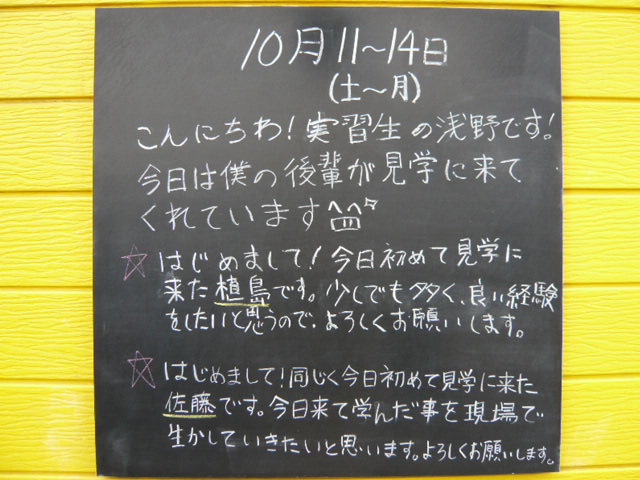 10月11〜14日
(土〜月)
こんにちわ!実習生の浅野です!
今日は僕の後輩が見学に来て
くれています
☆はじめまして!今日初めて見学に
来た植島です。少しでも多く、良い経験
をしたいと思うので、よろしくお願いします。
☆はじめまして!同じく今日初めて見学に来た
佐藤です。今日来て学んだ事を現場で
生かしていきたいと思います。よろしくお願いします。